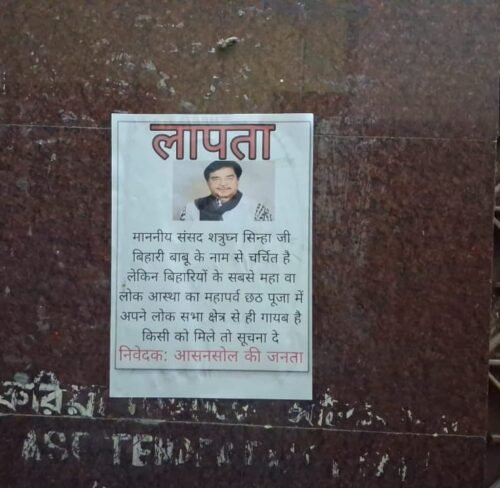 लापता
माननीय संसद शत्रुघ्न सिन्हा जी
बिहारी बाबू के नाम से चर्चित है
लेकिन बिहारियों के सबसे महा वा
लोक आस्था का महापर्व छठ पूजा में
अपने लोक सभा क्षेत्र से ही गायब है
किसी को मिले तो सूचना दे
निवेदक: आसनसोल की जनता
ASC TEND